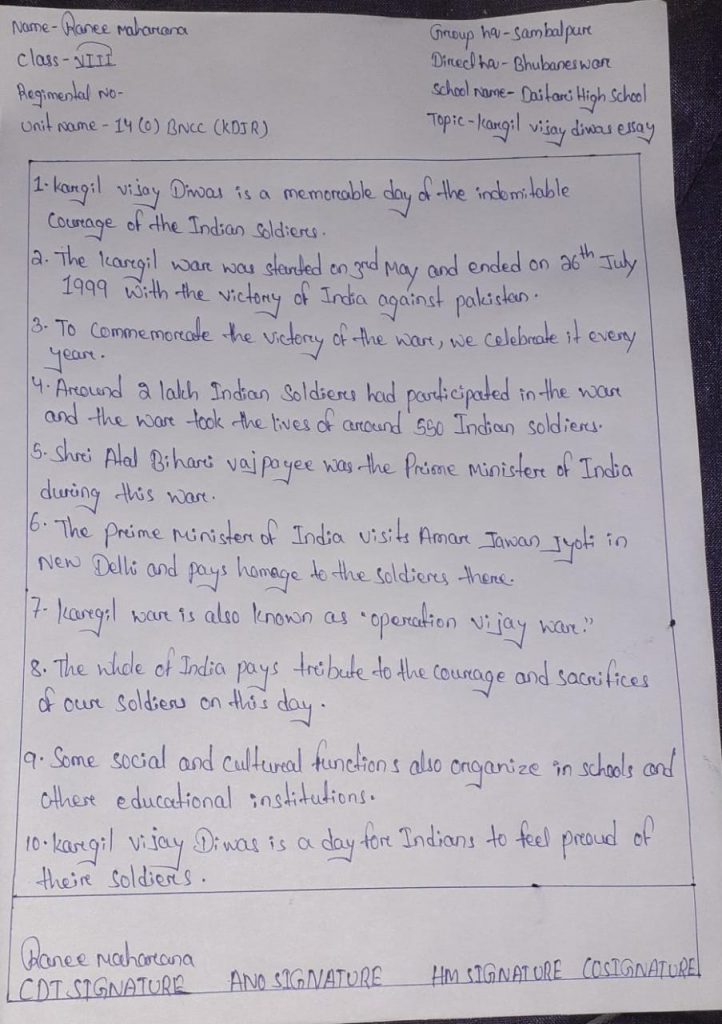 Name- Ranee Maharana
Group hq- Sambalpur
Class- VIII
Direct hq- Bhubaneswar
Regimental No-
School name- Daitari High School
Unit name - 14 (O) BNCC (KDJR)
Topic- Kargil vijay diwas essay
1. Kargil vijay Diwas is a memorable day of the indomitable
Courage of the Indian Soldiers.
2. The Kargil war was started on 3rd May and ended on 26th July
1999 with the victory of India against pakistan.
3. To Commemorate the victory of the war, we celebrate it every
year.
4. Around 2 lakh Indian Soldiers had participated in the war
and the war took the lives of around 550 Indian soldiers.
5. Shri Atal Bihari vajpayee was the Prime Minister of India
during this war.
6. The prime Minister of India visits Amar Jawan Jyoti in
New Delhi and pays homage to the soldiers there.
7. Kargil war is also known as "operation vijay war."
8. The whole of India pays tribute to the courage and sacrifices
of our soldiers on this day.
9. Some social and cultural functions also organize in schools and
other educational institutions.
10. Kargil vijay Diwas is a day for Indians to feel proud of
their soldiers.
Ranee Maharana
CDT SIGNATURE ANO SIGNATURE HM SIGNATURE CO SIGNATURE